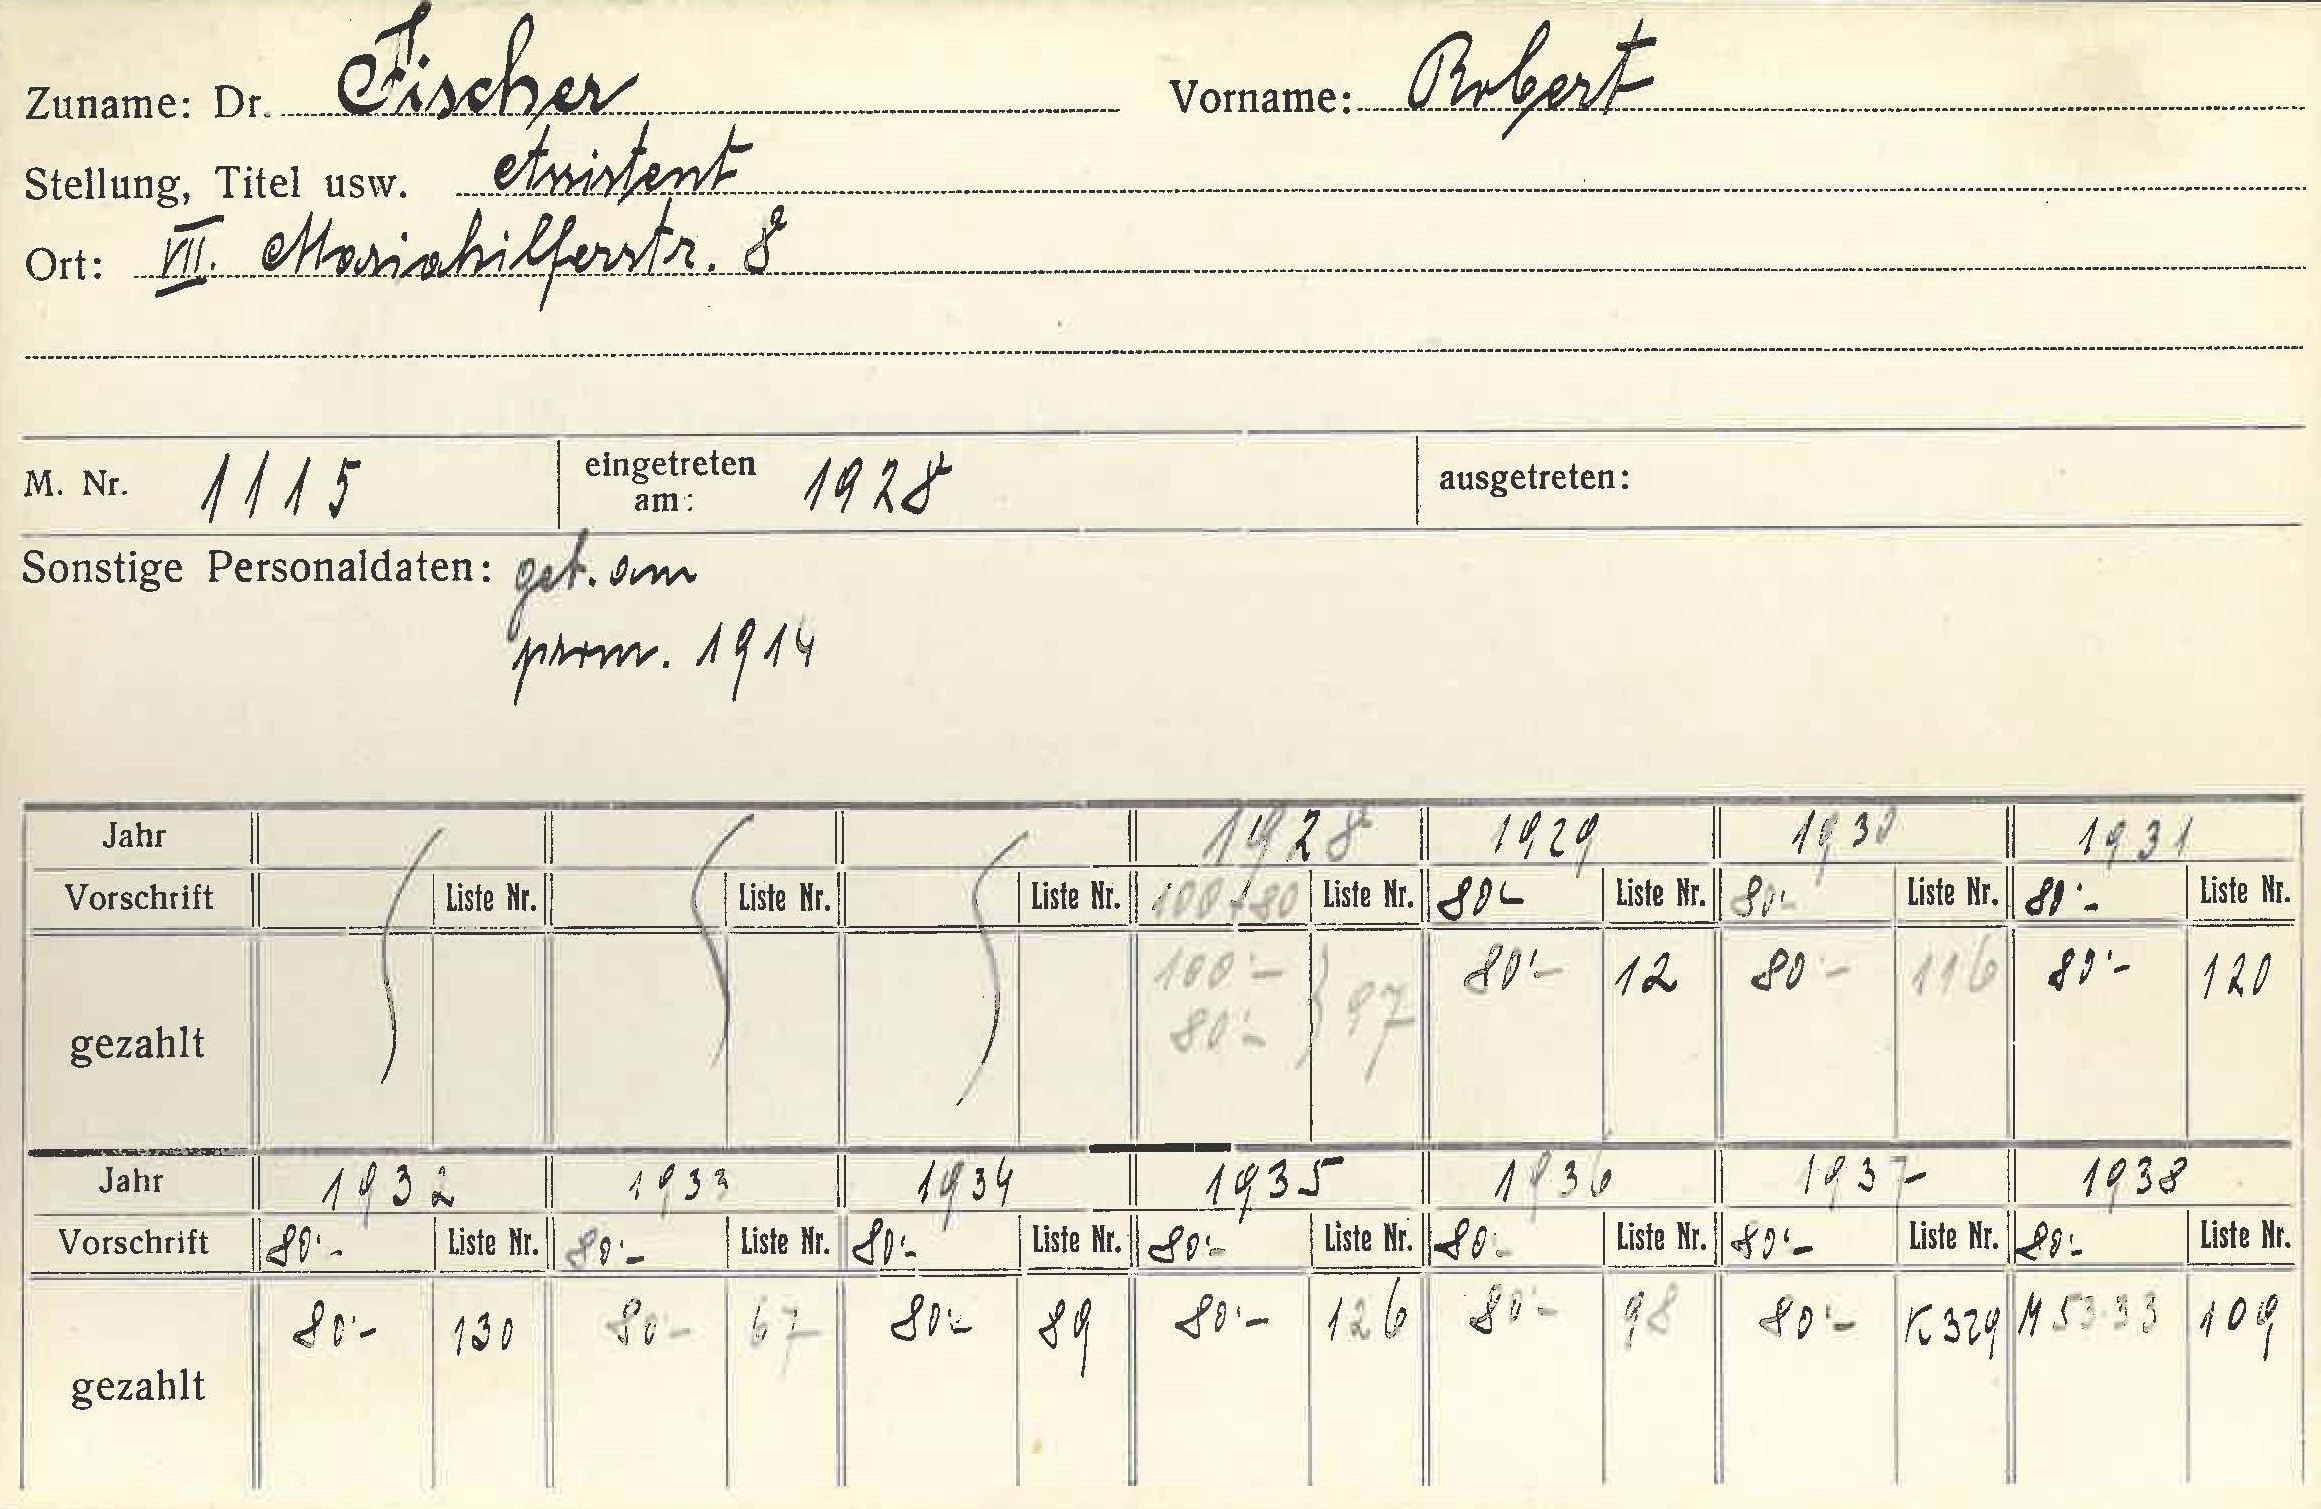 Zuname: Dr. Fischer Vorname: Robert
Stellung, Titel usw. Assistent
Ort: VII. Mariahilferstr. 8
M. Nr. 1115 eingetreten am: 1928 ausgetreten:
Sonstige Personaldaten: geb. am
prom. 1914
Jahr 1928 1929 1930 1931
Vorschrift Liste Nr. Liste Nr. Liste Nr. 100+80 Liste Nr. 80.- Liste Nr. 80.- Liste Nr. 80.- Liste Nr.
gezahlt 100.- 80.- } 97 80.- 12 80.- 116 80.- 120
Jahr 1932 1933 1934 1935 1936 1937 1938
Vorschrift 80.- Liste Nr. 80.- Liste Nr. 80.- Liste Nr. 80.- Liste Nr. 80.- Liste Nr. 80.- Liste Nr. 80.- Liste Nr.
gezahlt 80.- 130 80.- 67 80.- 89 80.- 126 80.- 98 80.- K 329 M 53.33 109